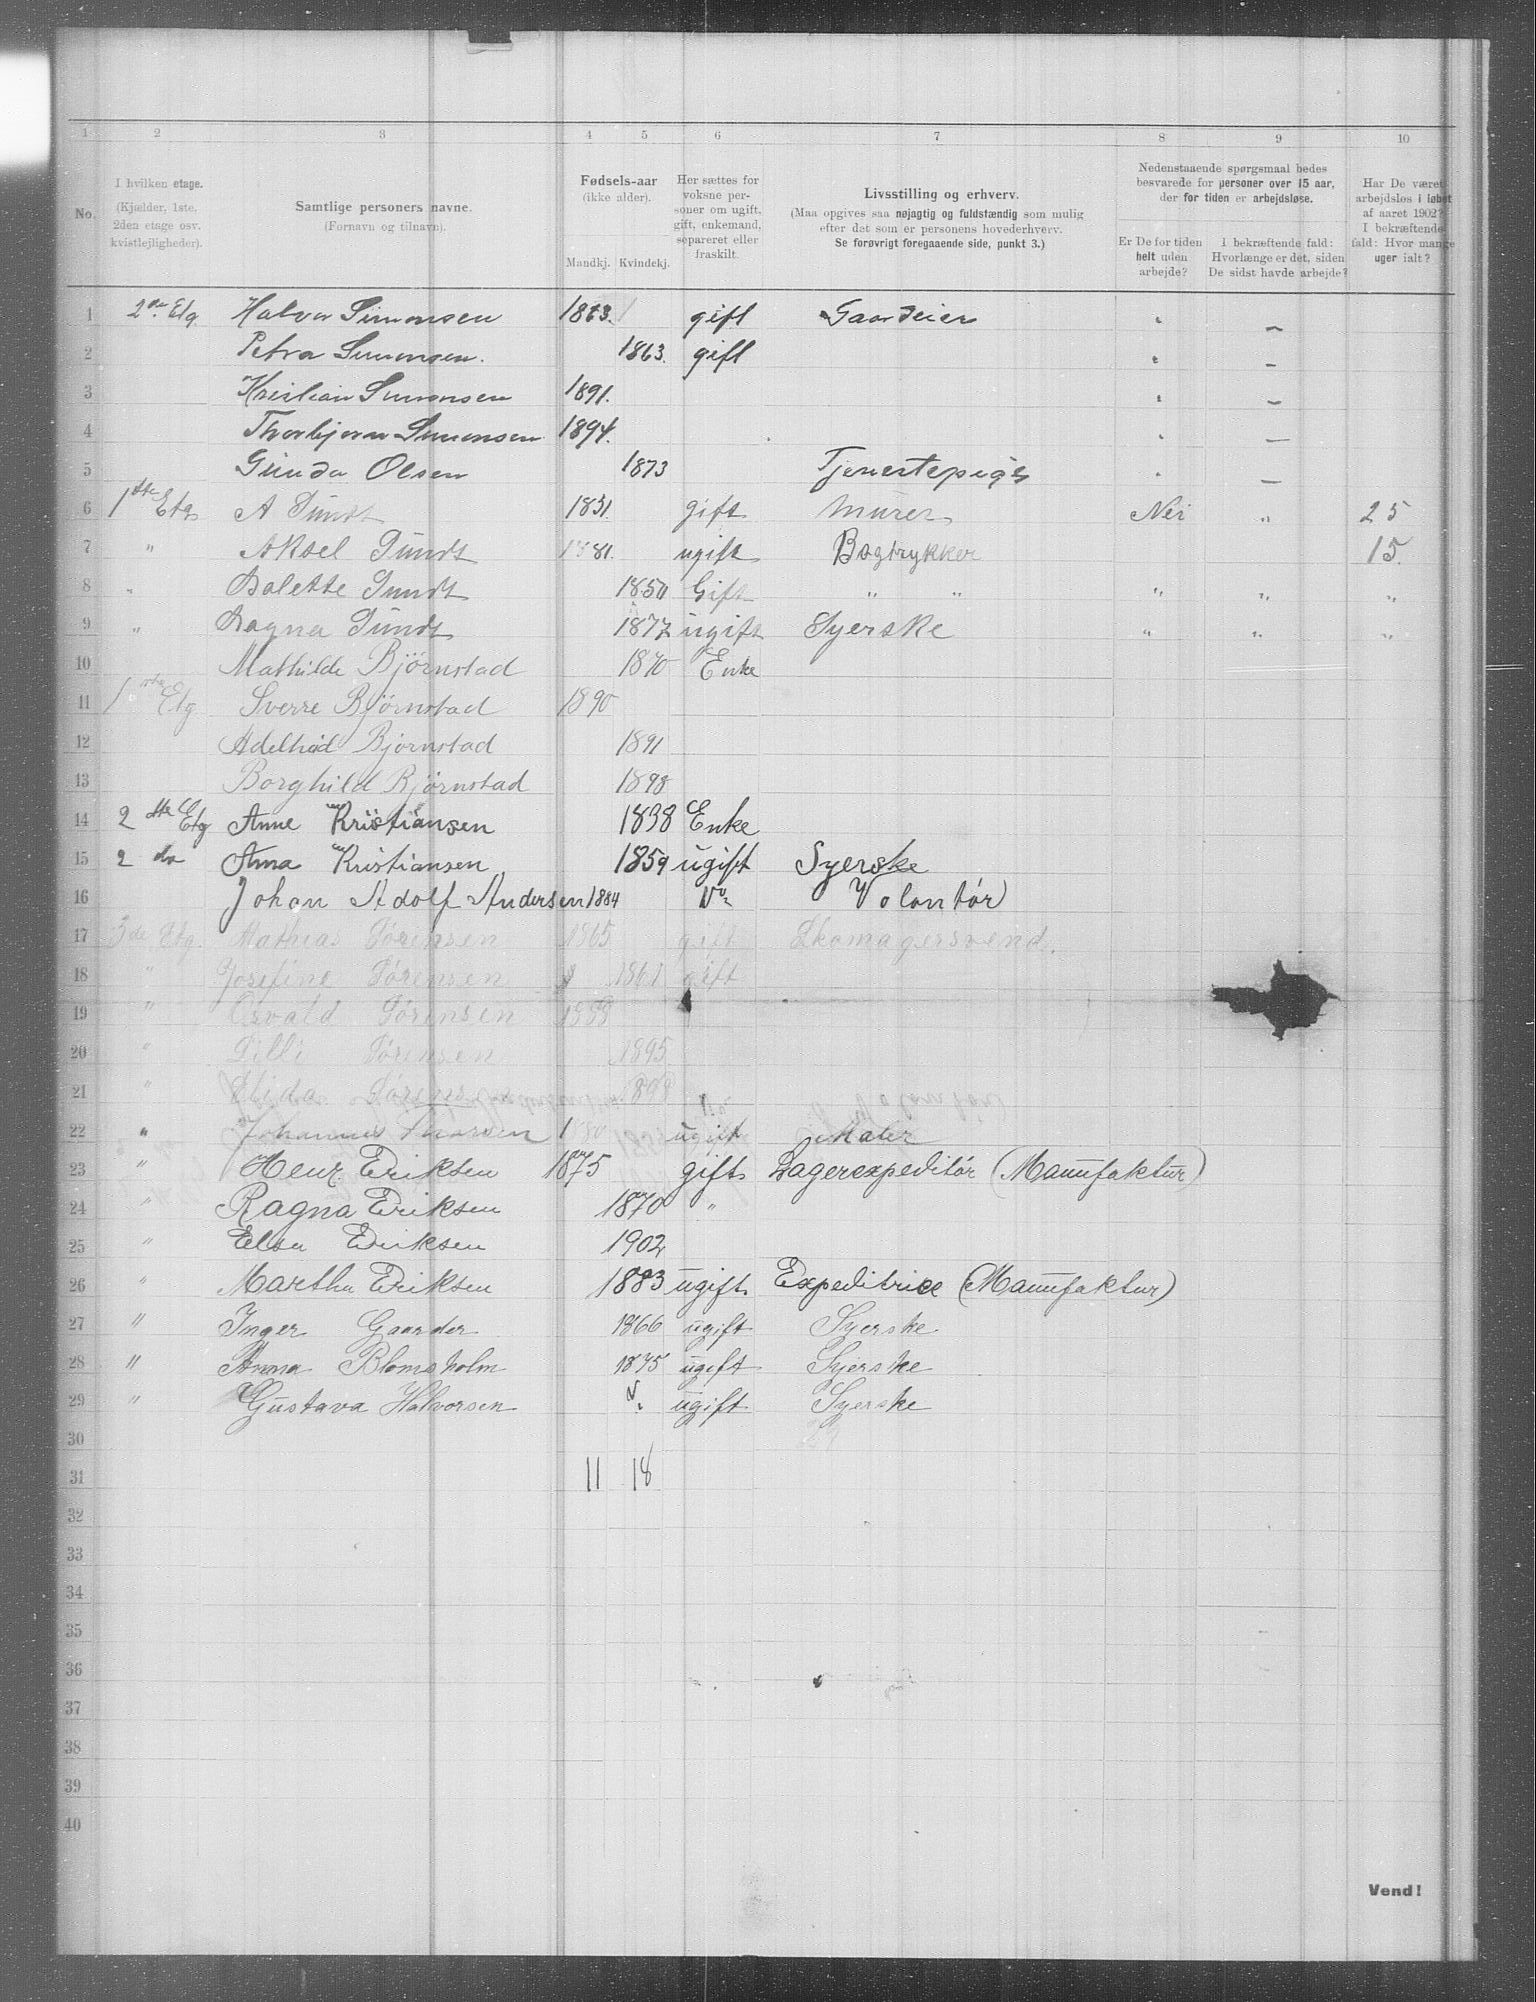 1 2 3 4 5 6 7 8 9 10
No.
I hvilken etage.
(Kjælder, 1ste,
2den etage osv.
kvistlejligheder).
Samtlige personers navne.
(Fornavn og tilnavn).
Fødsels-aar
(ikke alder).
Mandkj. Kvindekj.
Her sættes for
voksne per-
soner om ugift,
gift, enkemand,
separeret eller
fraskilt.
Livsstilling og erhverv.
(Maa opgives saa nøjagtig og fuldstændig som mulig
efter det som er personens hovederhverv.
Se forøvrigt foregaaende side, punkt 3.)
Nedenstaaende spørgsmaal bedes
besvarede for personer over 15 aar,
der for tiden er arbejdsløse.
Er De for tiden
helt uden
arbejde?
I bekræftende fald:
Hvorlænge er det, siden
De sidst havde arbejde?
Har De været
arbejdsløs i løbet
af aaret 1902?
I bekræftende
fald: Hvor mange
uger ialt?
1 2den Etg. Halvor Simonsen 1863. gift Gaardeier " –
2 Petra Simonsen. 1863. gift " –
3 Kristian Simonsen 1891. " –
4 Thorbjørn Simonsen 1894. " –
5 Gunda Olsen 1873 Tjenestepige " –
6 1ste Etg A Sundt 1831. gift Murer Nei " 25
7 " Aksel Sundt 1881. ugift Bogtrykker 15.
8 " Bolette Sundt 1850 Gift " " " " "
9 " Dagna Sundt 1877 ugift Syerske " " "
10 Mathilde Bjørnstad 1870 Enke
11 1ste Etg Sverre Bjørnstad 1890
12 Adelheid Bjørnstad 1891
13 Borghild Bjørnstad 1898
14 2 Etg Anne Kristiansen 1838 Enke
15 2 do Anna Kristiansen 1859 ugift Syerske
16 Johan Adolf Andersen 1884 Do Volontør
17 3de Etg. Mathias Sørensen 1865 gift Skomagersvend.
18 " Josefine Sørensen 1861 gift
19 " Osvald Sørensen 1888
20 " Lilli Sørensen 1895
21 " Elida Sørensen 1898
22 " Johannes 1880 ugift Maler
23 " Henr. Eriksen 1875 gift Lagerexpeditør (Manufaktur)
24 " Ragna Eriksen 1870 "
25 " Elsa Eriksen 1902
26 " Martha Eriksen 1883 ugift Expeditrice (Manufaktur)
27 " Inger Gaarder 1866 ugift Syerske
28 " Anna Blomsholm 1875 ugift Syerske
29 " Gustava Halvorsen ugift Syerske
30
31 11 18
32
33
34
35
36
37
38
39
40
Vend!